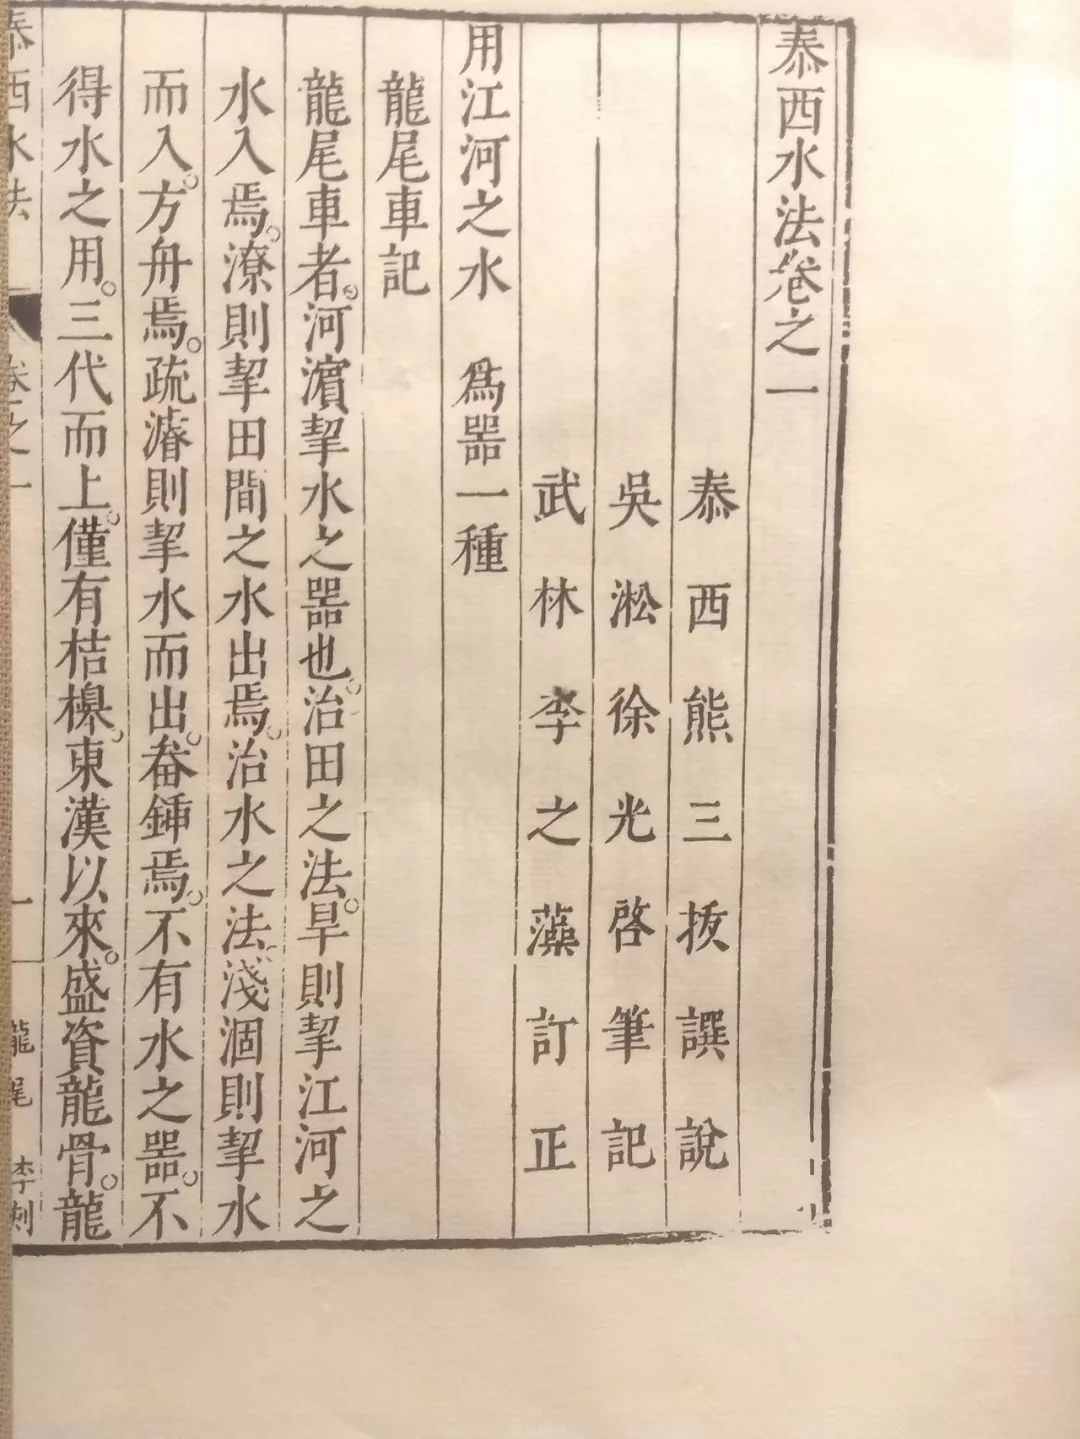 泰西水法卷之一
泰西熊三拔譔說
吳淞徐光啓筆記
武林李之藻訂正
用江河之水　爲器一種
龍尾車記
龍尾車者。河濵挈水之器也。治田之法。旱則挈江河之
水入焉。潦則挈田間之水出焉。治水之法。淺涸則挈水
而入。方舟焉。疏濬則挈水而出。畚鍤焉。不有水之器。不
得水之用。三代而上。僅有桔槔。東漢以來。盛資龍骨。龍
泰西水法　卷之一　一　龍尾　李刻